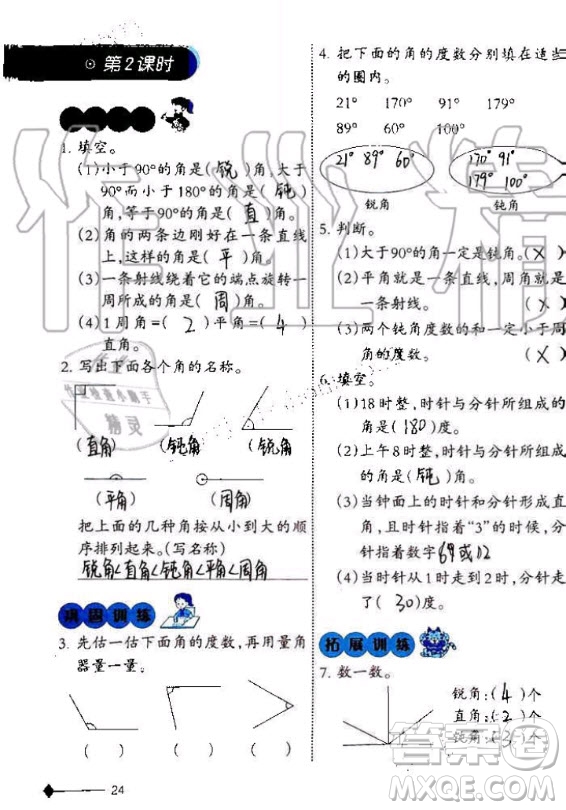 第2课时
1. 填空。
(1)小于90°的角是(锐)角,大于
90°而小于180°的角是(钝)
角,等于90°的角是(直)角。
(2)角的两条边刚好在一条直线
上,这样的角是(平)角。
(3)一条射线绕着它的端点旋转一
周所成的角是(周)角。
(4)1周角=(2)平角=(4)
直角。
2. 写出下面各个角的名称。
(直角) (钝角) (锐角)
(平角) (周角)
把上面的几种角按从小到大的顺
序排列起来。(写名称)
锐角<直角<钝角<平角<周角
巩固训练
3. 先估一估下面角的度数,再用量角
器量一量。
( ) ( ) ( )
24
4. 把下面的角的度数分别填在适当
的圈内。
21° 170° 91° 179°
89° 60° 100°
21° 89° 60°
锐角
170° 91°
179° 100°
钝角
5. 判断。
(1)大于90°的角一定是钝角。(X)
(2)平角就是一条直线,周角就是
一条射线。 (X)
(3)两个钝角度数的和一定小于周
角的度数。 (X)
6. 填空。
(1)18时整,时针与分针所组成的
角是(180)度。
(2)上午8时整,时针与分针所组成
的角是(钝)角。
(3)当钟面上的时针和分针成直
角,且时针指着“3”的时候,分
针指着数字
或12
(4)当时针从1时走到2时,分针走
了(30)度。
拓展训练
7. 数一数。
锐角:(4)个
直角:(2)个
钝角:(3)个
作业精
作业检查小助手
精灵
答案圈
MXQE.COM